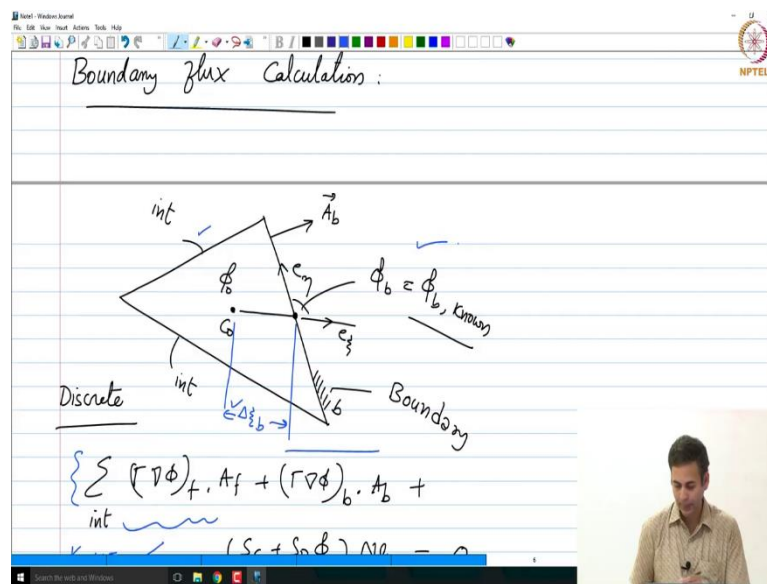 Note1 - Windows Journal
File Edit View Insert Actions Tools Help
B I
NPTEL
Boundary flux Calculation :
int
A⃗_b
φ_0
e_η
φ_b = φ_b, known
C_0
e_ξ
int
Δξ_b
b
Boundary
Discrete
{ Σ (Γ∇φ)_f . A_f + (Γ∇φ)_b . A_b +
int
6
Search the web and Windows